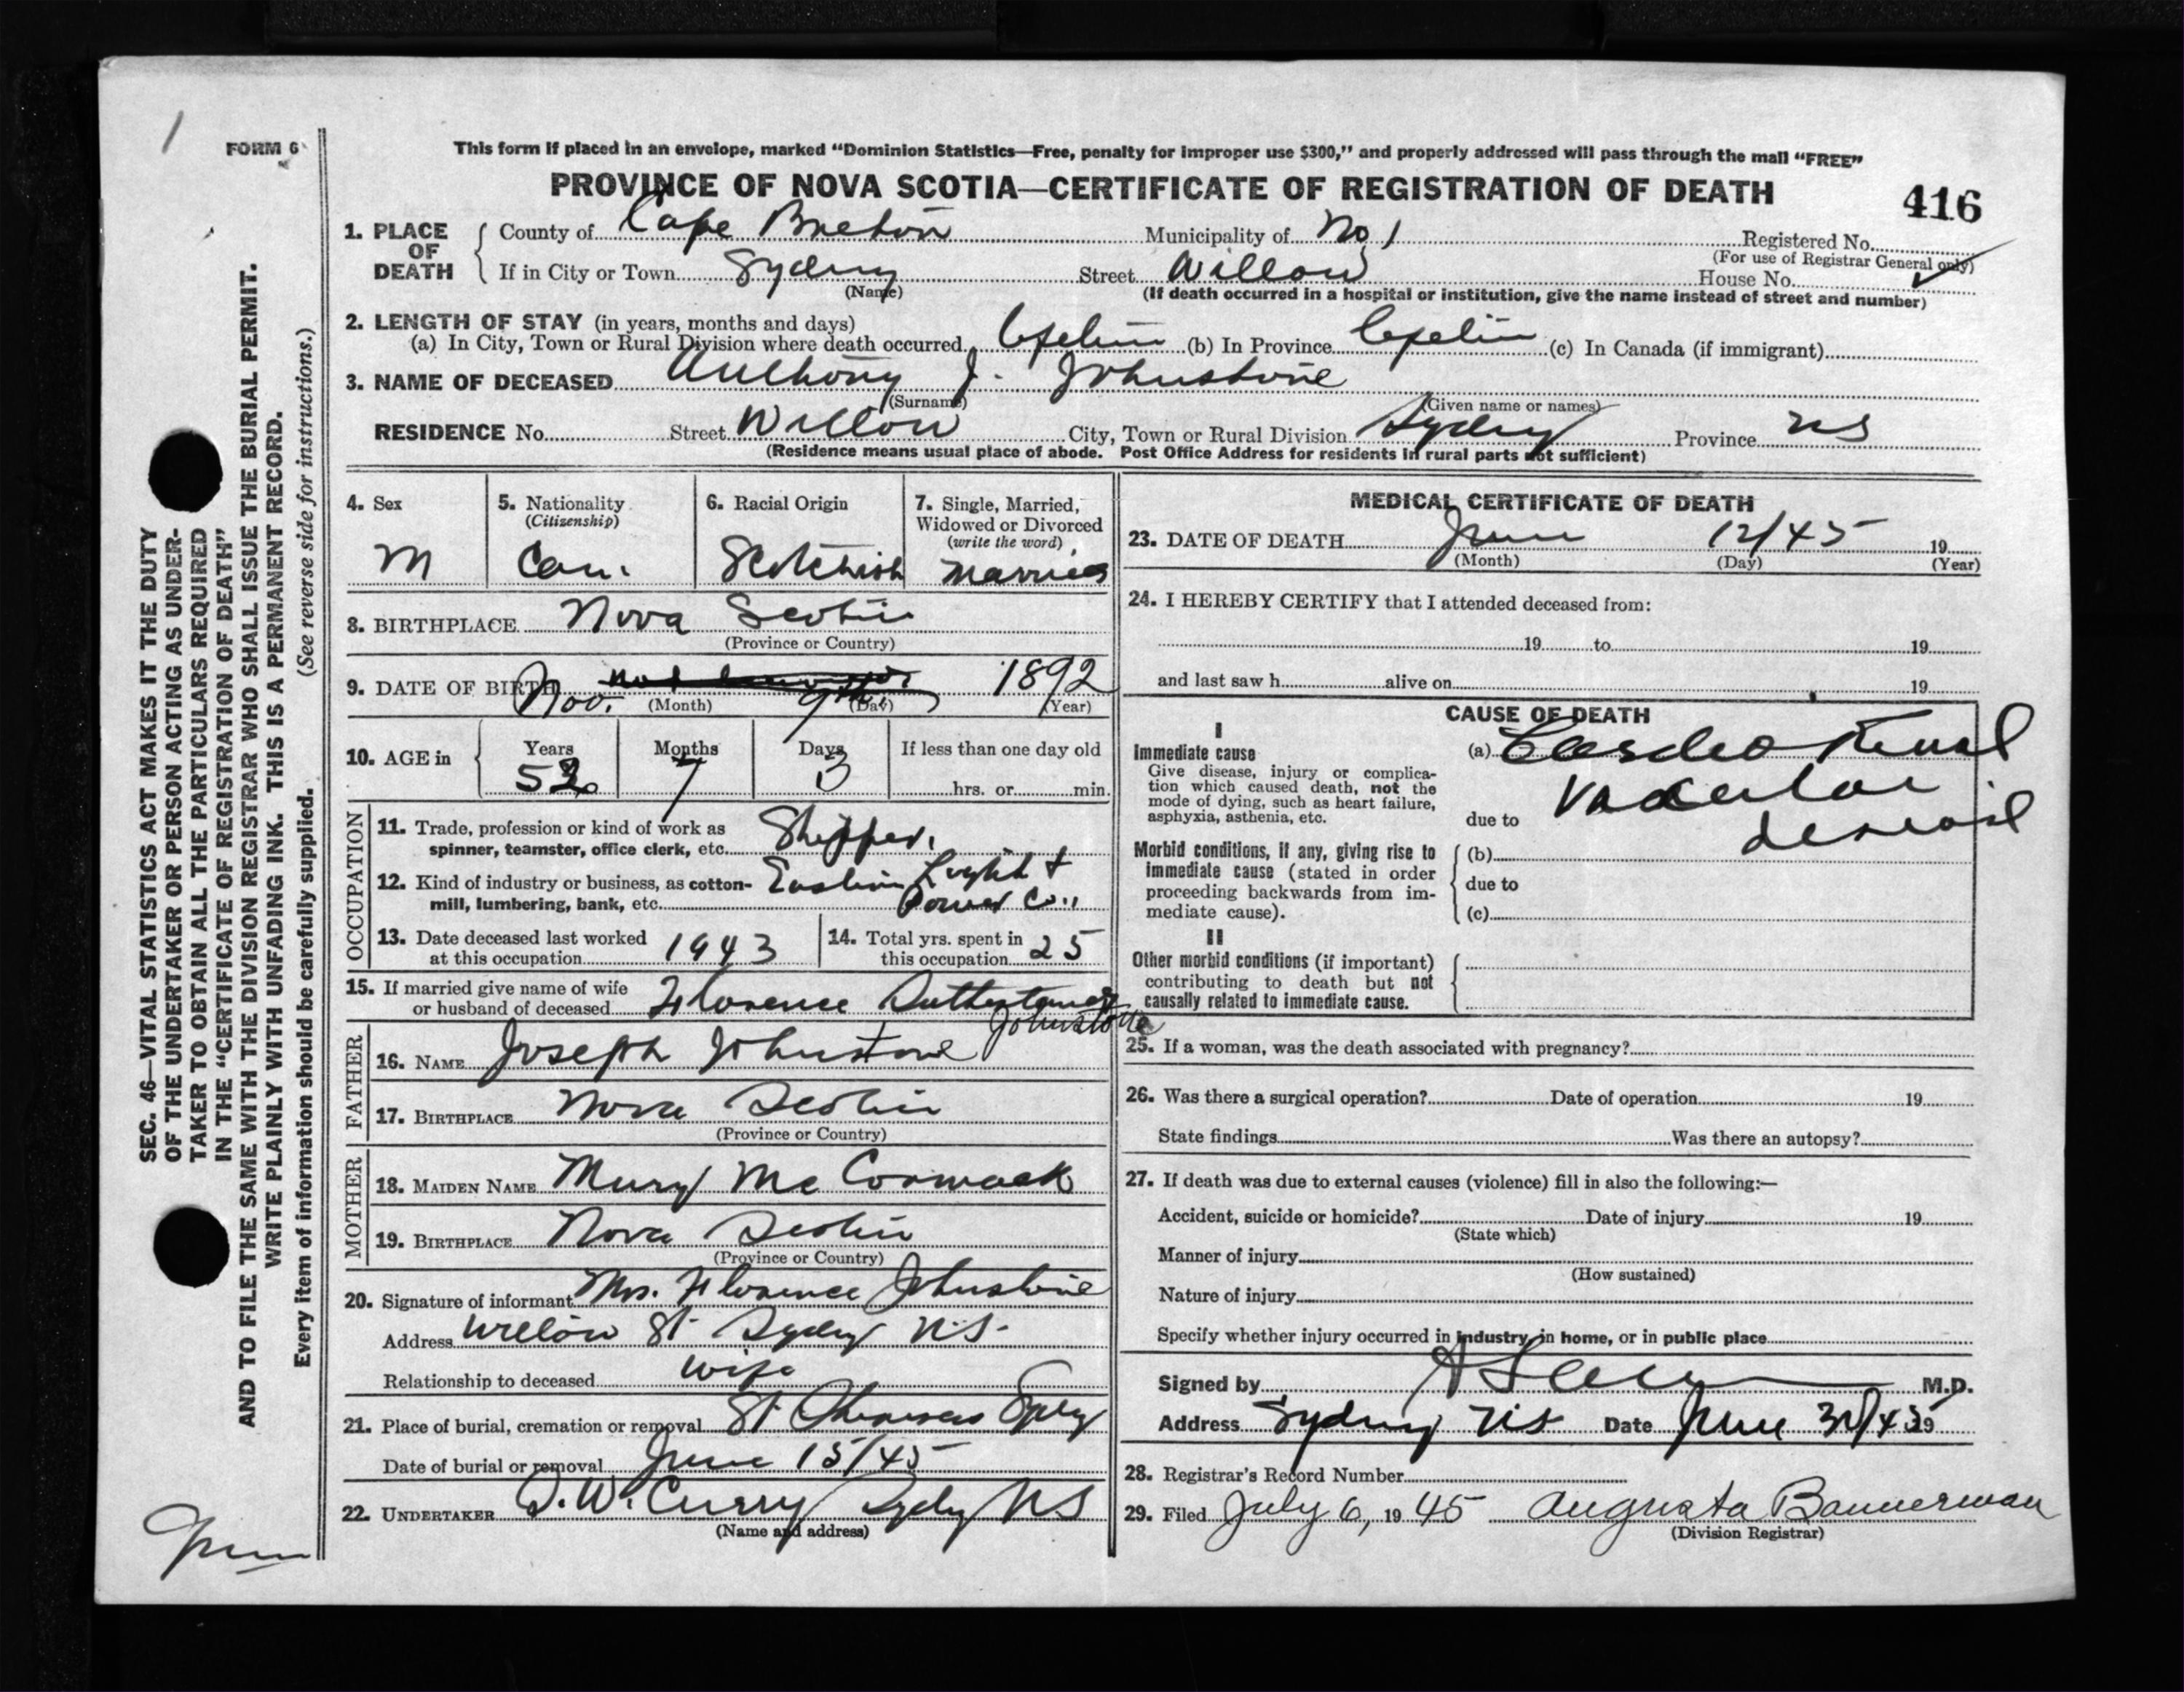 1
FORM 6
This form if placed in an envelope, marked “Dominion Statistics—Free, penalty for improper use $300,” and properly addressed will pass through the mail “FREE”
PROVINCE OF NOVA SCOTIA—CERTIFICATE OF REGISTRATION OF DEATH
416
1. PLACE OF DEATH
County of Cape Breton Municipality of No 1 Registered No.
(For use of Registrar General only)
If in City or Town Sydney Street Willow House No.
(Name)
(If death occurred in a hospital or institution, give the name instead of street and number)
2. LENGTH OF STAY (in years, months and days)
(a) In City, Town or Rural Division where death occurred (b) In Province (c) In Canada (if immigrant)
3. NAME OF DECEASED Anthony J. Johnstone
(Surname) (Given name or names)
RESIDENCE No. Street Willow City, Town or Rural Division Sydney Province NS
(Residence means usual place of abode. Post Office Address for residents in rural parts not sufficient)
4. Sex
M
5. Nationality
(Citizenship)
Can.
6. Racial Origin
Scotchish
7. Single, Married,
Widowed or Divorced
(write the word)
Married
8. BIRTHPLACE Nova Scotia
(Province or Country)
9. DATE OF BIRTH Nov. 9th 1892
(Month) (Day) (Year)
10. AGE in
Years Months Days If less than one day old
52 7 3 hrs. or min.
OCCUPATION
11. Trade, profession or kind of work as
spinner, teamster, office clerk, etc. Shipper.
12. Kind of industry or business, as cotton- Eastern Light &
mill, lumbering, bank, etc. Power Co.,
13. Date deceased last worked
at this occupation 1943
14. Total yrs. spent in
this occupation 25
15. If married give name of wife
or husband of deceased Florence Sutherland
Johnstone
FATHER
16. NAME Joseph Johnstone
17. BIRTHPLACE Nova Scotia
(Province or Country)
MOTHER
18. MAIDEN NAME Mary Mc Cormack
19. BIRTHPLACE Nova Scotia
(Province or Country)
20. Signature of informant Mrs. Florence Johnstone
Address Willow St Sydney N.S.
Relationship to deceased wife
21. Place of burial, cremation or removal St
Date of burial or removal June 15/45
22. UNDERTAKER W. Curry Sydney NS
(Name and address)
MEDICAL CERTIFICATE OF DEATH
23. DATE OF DEATH June 12/45 19
(Month) (Day) (Year)
24. I HEREBY CERTIFY that I attended deceased from:
19 to 19
and last saw h alive on 19
CAUSE OF DEATH
I
Immediate cause
Give disease, injury or complica-
tion which caused death, not the
mode of dying, such as heart failure,
asphyxia, asthenia, etc.
(a) Cardio Renal
Vascular
due to
disease
Morbid conditions, if any, giving rise to
immediate cause (stated in order
proceeding backwards from im-
mediate cause).
(b)
due to
(c)
II
Other morbid conditions (if important)
contributing to death but not
causally related to immediate cause.
25. If a woman, was the death associated with pregnancy?
26. Was there a surgical operation? Date of operation 19
State findings Was there an autopsy?
27. If death was due to external causes (violence) fill in also the following:—
Accident, suicide or homicide? Date of injury 19
(State which)
Manner of injury
(How sustained)
Nature of injury
Specify whether injury occurred in industry, in home, or in public place
Signed by M.D.
Address Sydney NS Date June
28. Registrar's Record Number
29. Filed July 6, 19 45 Augusta Bannerman
(Division Registrar)
SEC. 46—VITAL STATISTICS ACT MAKES IT THE DUTY
OF THE UNDERTAKER OR PERSON ACTING AS UNDER-
TAKER TO OBTAIN ALL THE PARTICULARS REQUIRED
IN THE “CERTIFICATE OF REGISTRATION OF DEATH”
AND TO FILE THE SAME WITH THE DIVISION REGISTRAR WHO SHALL ISSUE THE BURIAL PERMIT.
WRITE PLAINLY WITH UNFADING INK. THIS IS A PERMANENT RECORD.
Every item of information should be carefully supplied. (See reverse side for instructions.)